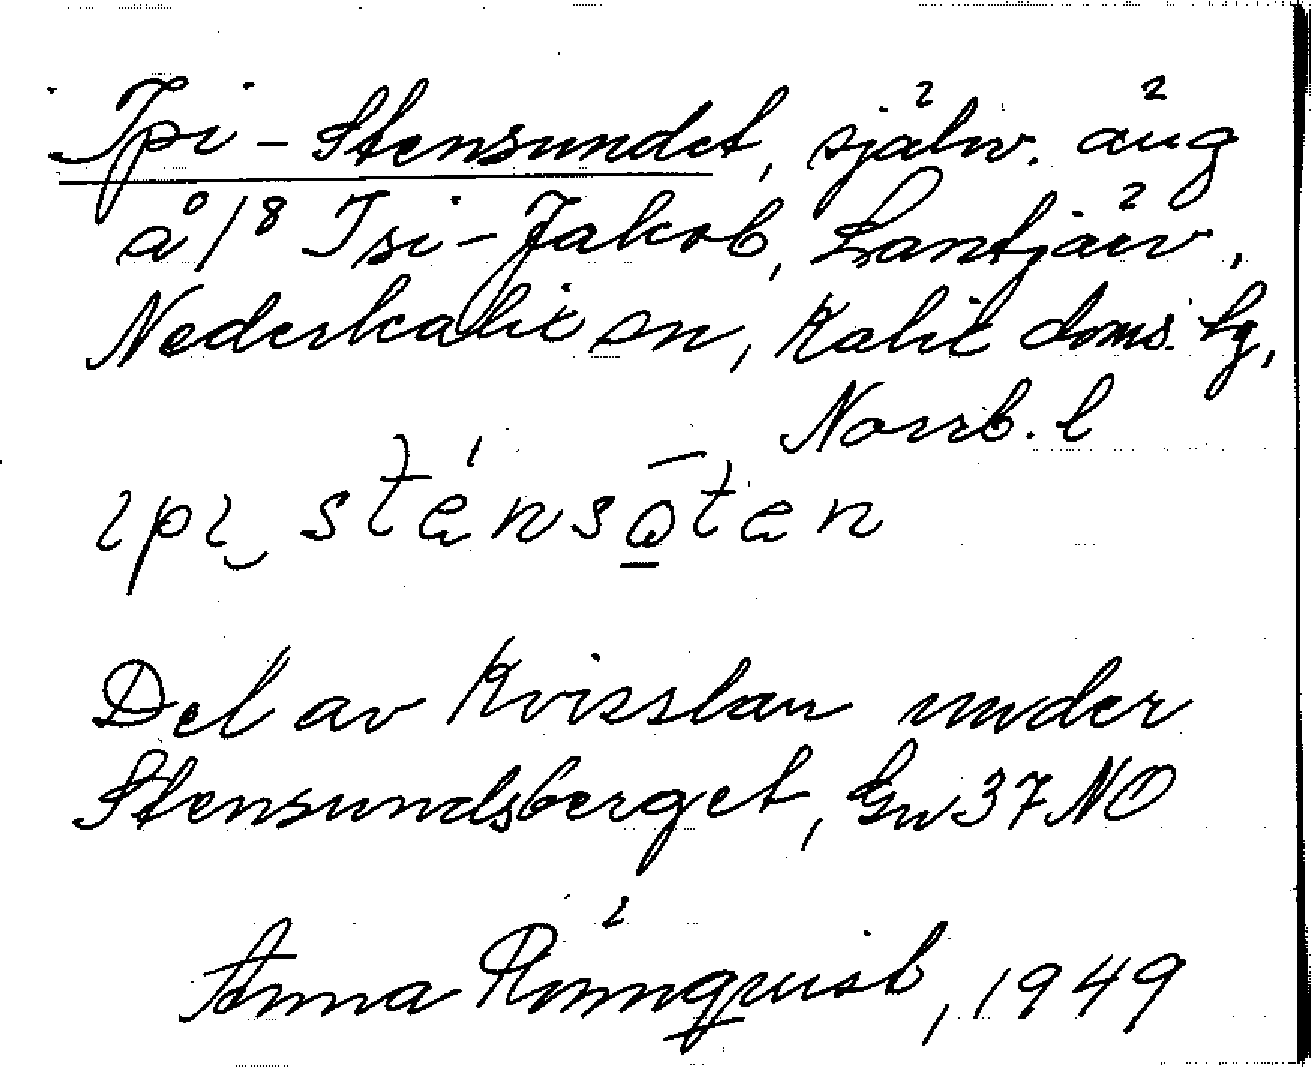 Ipi-Stensundet, självv. äng
å 1/8 Isi-Jakob, Lantjärv,
Nederkalix sn, Kalix doms. lg,
Norrb. l
ıpı stensōtən
Del av Kvisslan under
Stensundsberget, Gw 37 NO
Anna Rönnquist, 1949